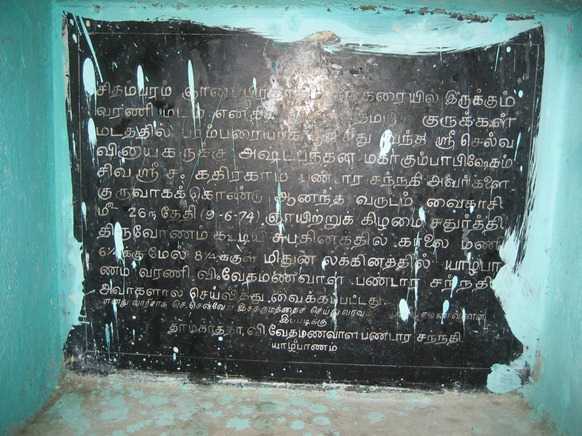 சிதம்பரம் ஞானப்பிரகாசர் கரையில் இருக்கும்
வரணி மடம் குருக்கள்
மடத்தில் பரம்பரையாக இருந்து வந்த ஸ்ரீ செல்வ
விநாயகருக்கு அஷ்டபந்தன மகாகும்பாபிஷேகம்
சிவ ஸ்ரீ ச. ககிர்காம பண்டார சந்நதி அவர்களை
குருவாகக்கொண்டு ஆனந்த வருடம் வைகாசி
மீ 26ந் தேதி (9-6-74) ஞாயிற்றுக் கிழமை சதுர்த்தி
திருவோணம் கூடிய சுபதினத்தில் காலை மணி
6½க்குமேல் 8¼க்குள் மிதுன லக்கினத்தில் யாழ்பா
ணம் வரணி, வி. வேதமணவாள பண்டார சந்நதி
அவர்களால் செய்வித்து வைக்கப்பட்டது.
எனது வாரிசாக
இப்படிக்கு
தர்மகர்த்தா, வி வேதமணவாளபண்டார சந்நதி
யாழ்பாணம்